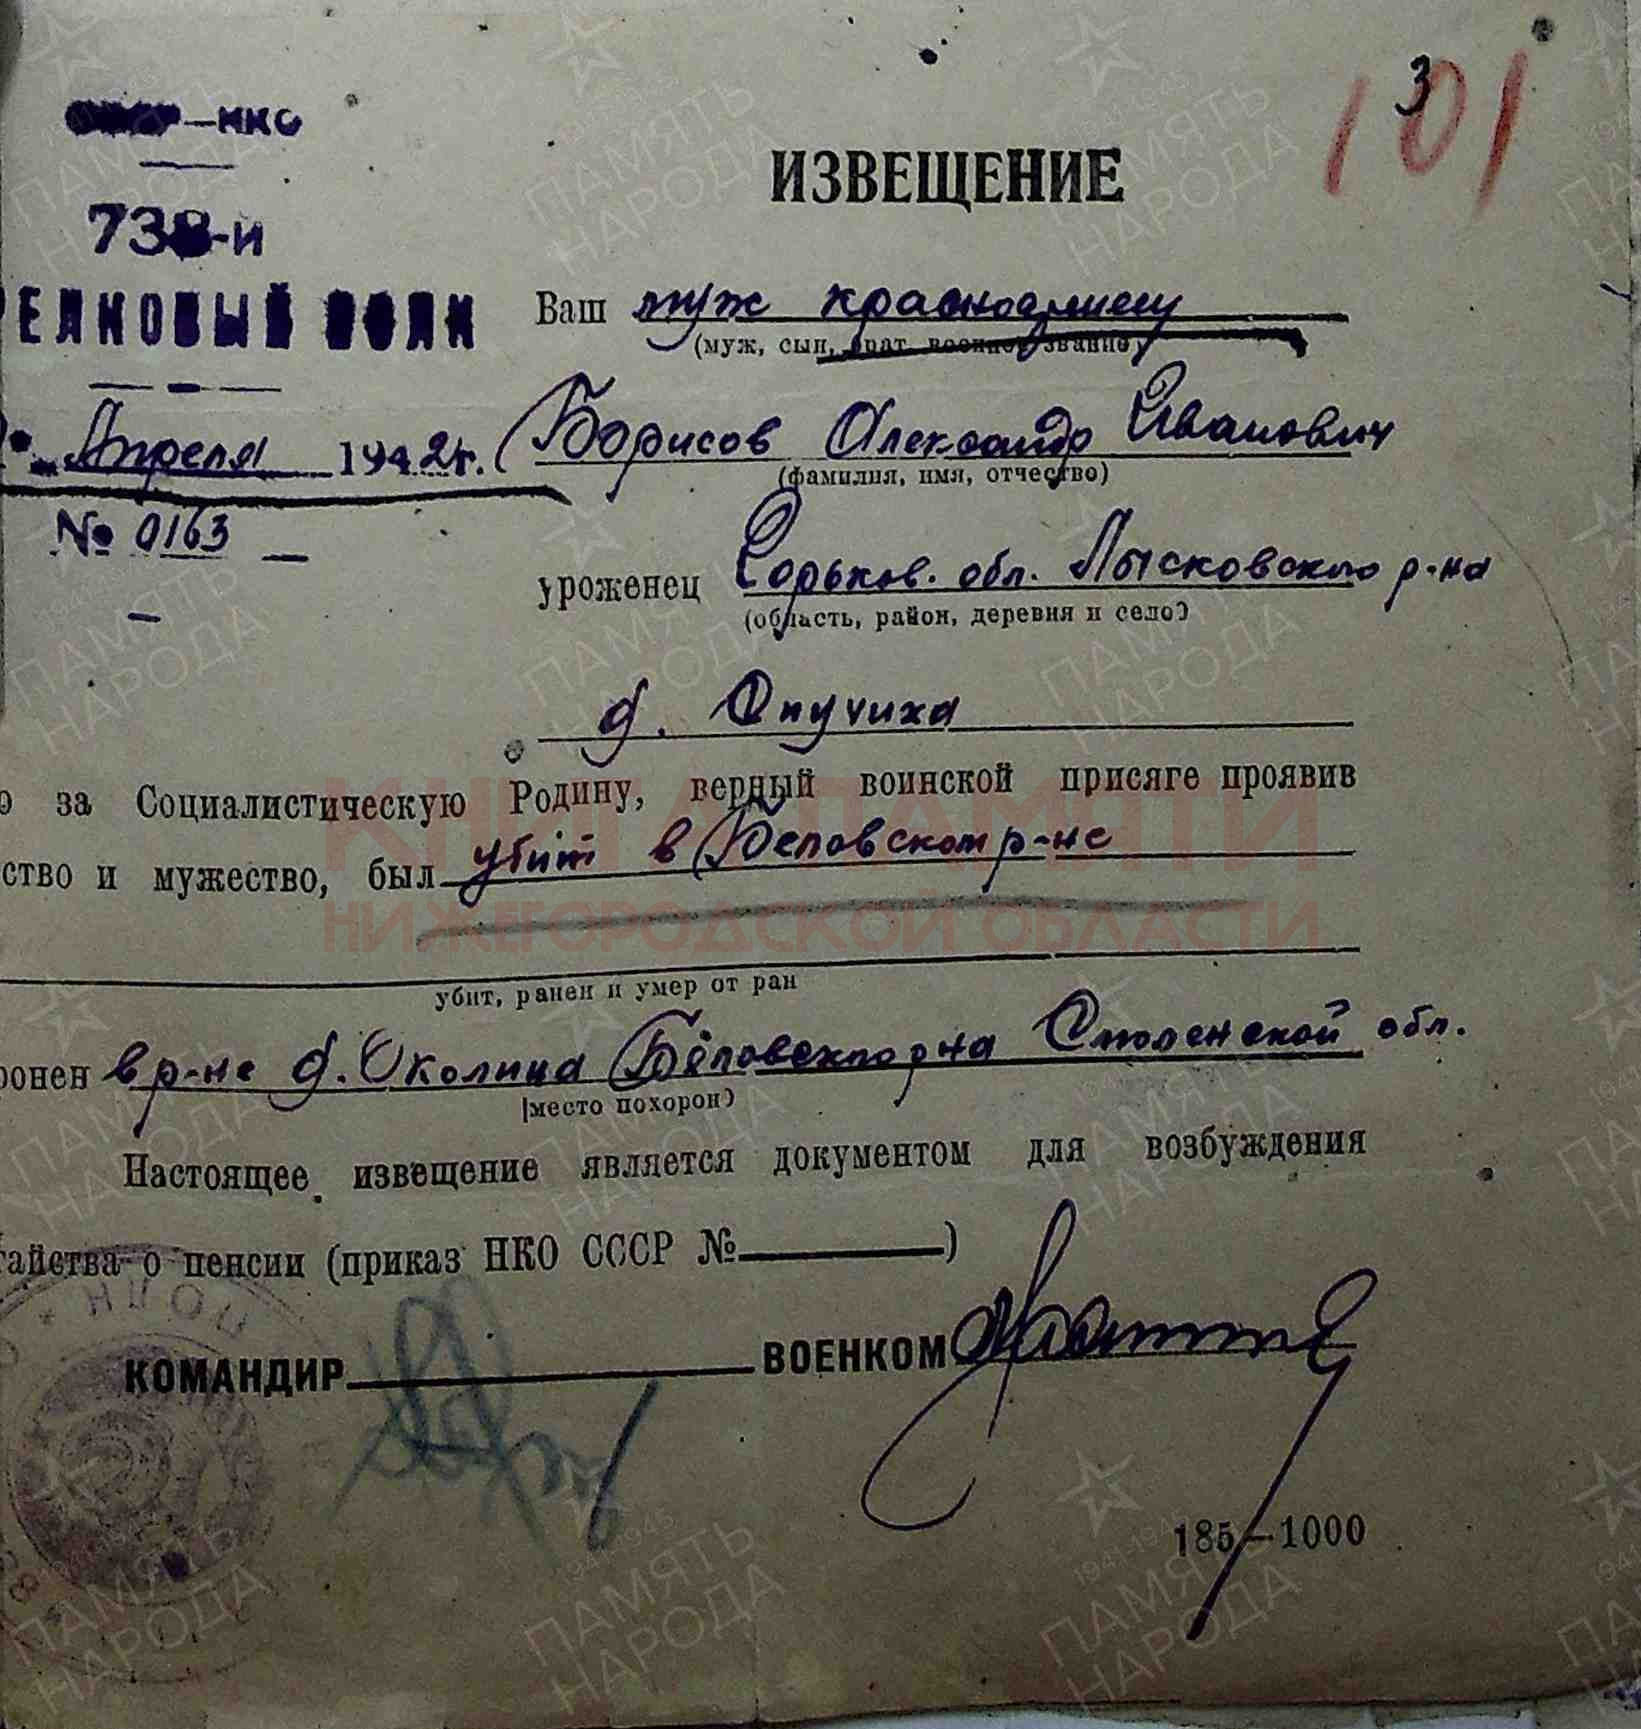 101
3
НКО
ИЗВЕЩЕНИЕ
738-й
РЕЛКОВЫЙ ПОЛК
Ваш муж красноармеец
(муж, сын, брат, военное звание)
Апреля 1942 г.
Борисов Александр Иванович
(фамилия, имя, отчество)
№ 0163
уроженец Горьков. обл. Лысковского р-на
(область, район, деревня и село)
д.
о за Социалистическую Родину, верный воинской присяге проявив
ство и мужество, был убит в Беловском р-не
убит, ранен и умер от ран
ронен в р-не д. Околица Смоленской обл.
(место похорон)
Настоящее извещение является документом для возбуждения
тайства о пенсии (приказ НКО СССР №)
КОМАНДИР ВОЕНКОМ
185—1000
КНИГА ПАМЯТИ
НИЖЕГОРОДСКОЙ ОБЛАСТИ
ПАМЯТЬ
НАРОДА
1941-1945